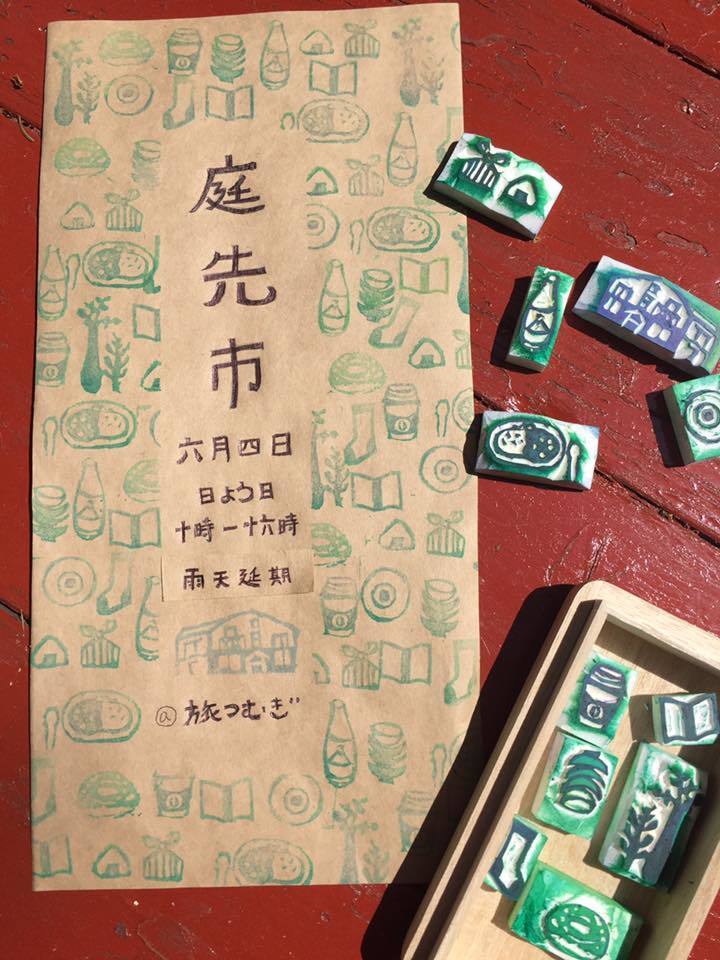 庭先市
六月四日
日よう日
十時ー十六時
雨天延期
@旅つむぎ